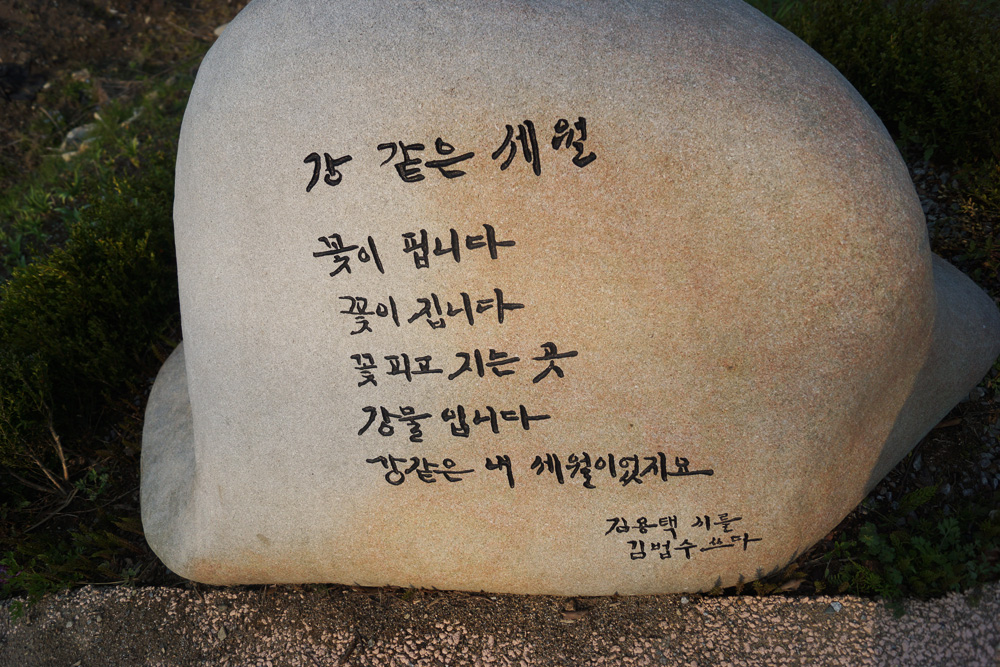 강 같은 세월
꽃이 핍니다
꽃이 집니다
꽃피고 지는 곳
강물 입니다
강같은 내 세월이었지요
김용택 시를
김범수 쓰다